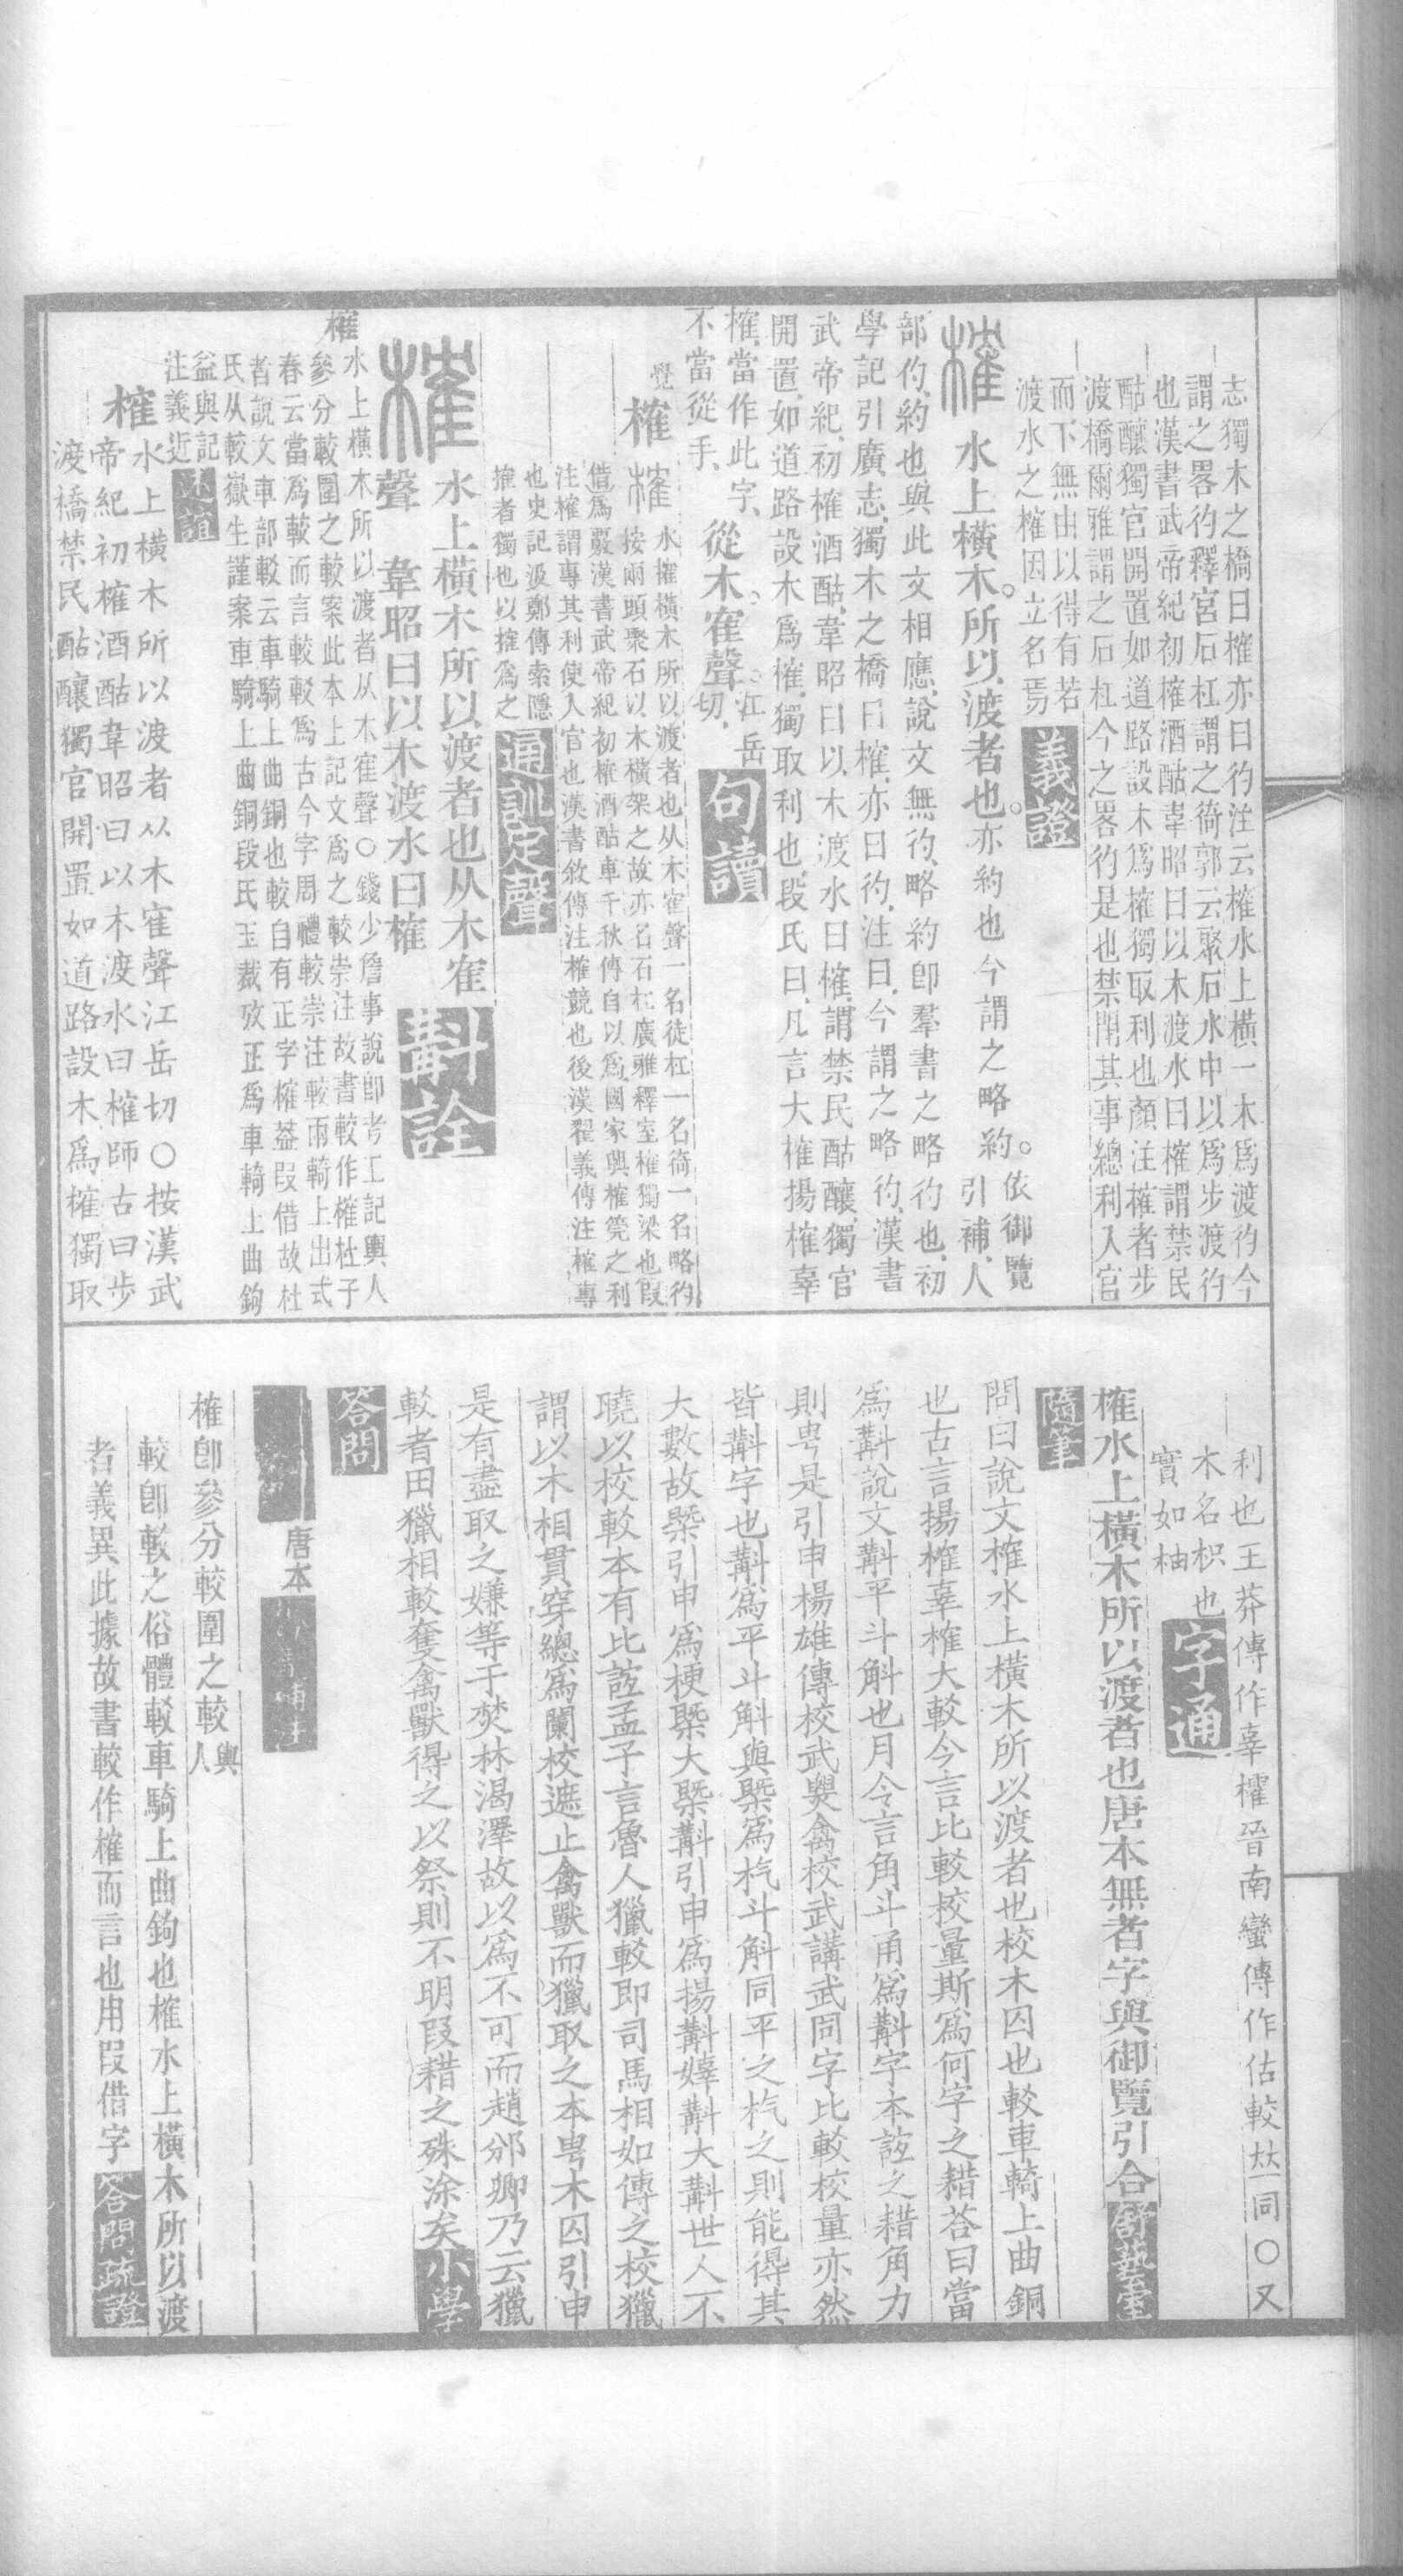 志獨木之橋曰榷亦曰彴注云榷水上橫一木爲渡彴今
謂之畧彴釋宮石杠謂之徛郭云聚石水中以爲步渡彴
也漢書武帝紀初榷酒酤韋昭曰以木渡水曰榷謂禁民
酤釀獨官開置如道路設木爲榷獨取利也顏注榷者步
渡橋爾雅謂之石杠今之畧彴是也禁閉其事總利入官
而下無由以得有若
渡水之榷因立名焉
義證
榷
水上橫木。所以渡者也。亦約也今謂之略約。依御覽
引補、人
部仢、約也、與此文相應、說文無彴、略約卽羣書之略彴也、初
學記引廣志、獨木之橋曰榷、亦曰彴、注曰、今謂之略彴、漢書
武帝紀、初榷酒酤、韋昭曰、以木渡水曰榷、謂禁民酤釀、獨官
開置、如道路設木爲榷、獨取利也、段氏曰、凡言大榷揚榷辜
榷、當作此字、
不當從手、
從木隺聲。江岳
切、
句讀
覺
榷
榷
水榷橫木所以渡者也从木隺聲一名徒杠一名徛一名略彴
按兩頭聚石以木橫架之故亦名石杠廣雅釋室榷獨梁也叚
借爲覈漢書武帝紀初榷酒酤車千秋傳自以爲國家興榷筦之利
注榷謂專其利使入官也漢書敘傳注榷競也後漢翟義傳注榷專
也史記汲鄭傳索隱
搉者獨也以搉爲之
通訓定聲
榷
水上橫木所以渡者也从木隺
聲　韋昭曰以木渡水曰榷
斠詮
榷
水上橫木所以渡者从木隺聲○錢少詹事說卽考工記輿人
參分較圍之較案此本上記文爲之較崇注故書較作榷杜子
春云當爲較而言較較爲古今字周禮較崇注較兩輢上出式
者說文車部較云車騎上曲銅也較自有正字榷葢叚借故杜
氏从較嶽生謹案車騎上曲銅段氏玉裁攷正爲車輢上曲鉤
益與記
注義近
述誼
榷
水上橫木所以渡者从木隺聲江岳切○按漢武
帝紀初榷酒酤韋昭曰以木渡水曰榷師古曰步
渡橋禁民酤釀獨官開置如道路設木爲榷獨取
利也王莽傳作辜㩴晉南蠻傳作估較𠀤同○又
木名枳也
實如柚
字通
榷水上橫木所以渡者也唐本無者字與御覽引合
舒藝室
隨筆
問曰說文榷水上橫木所以渡者也校木囚也較車輢上曲銅
也古言揚榷辜榷大較今言比較校量斯爲何字之耤荅曰當
爲斠說文斠平斗斛也月令言角斗甬爲斠字本誼之耤角力
則寽是引申楊雄傳校武㷼禽校武講武同字比較校量亦然
皆斠字也斠爲平斗斛與槩爲杚斗斛同平之杚之則能得其
大數故槩引申爲梗槩大槩斠引申爲揚斠嫴斠大斠世人不
曉以校較本有比誼孟子言魯人獵較即司馬相如傳之校獵
謂以木相貫穿總爲闌校遮止禽獸而獵取之本寽木囚引申
是有盡取之嫌等于焚林渴澤故以爲不可而趙邠卿乃云獵
較者田獵相較奪禽獸得之以祭則不明叚耤之殊涂矣
小學
答問
唐本
榷卽參分較圍之較輿
人
較卽較之俗體較車騎上曲鉤也榷水上橫木所以渡
者義異此據故書較作榷而言也用叚借字
答問疏證